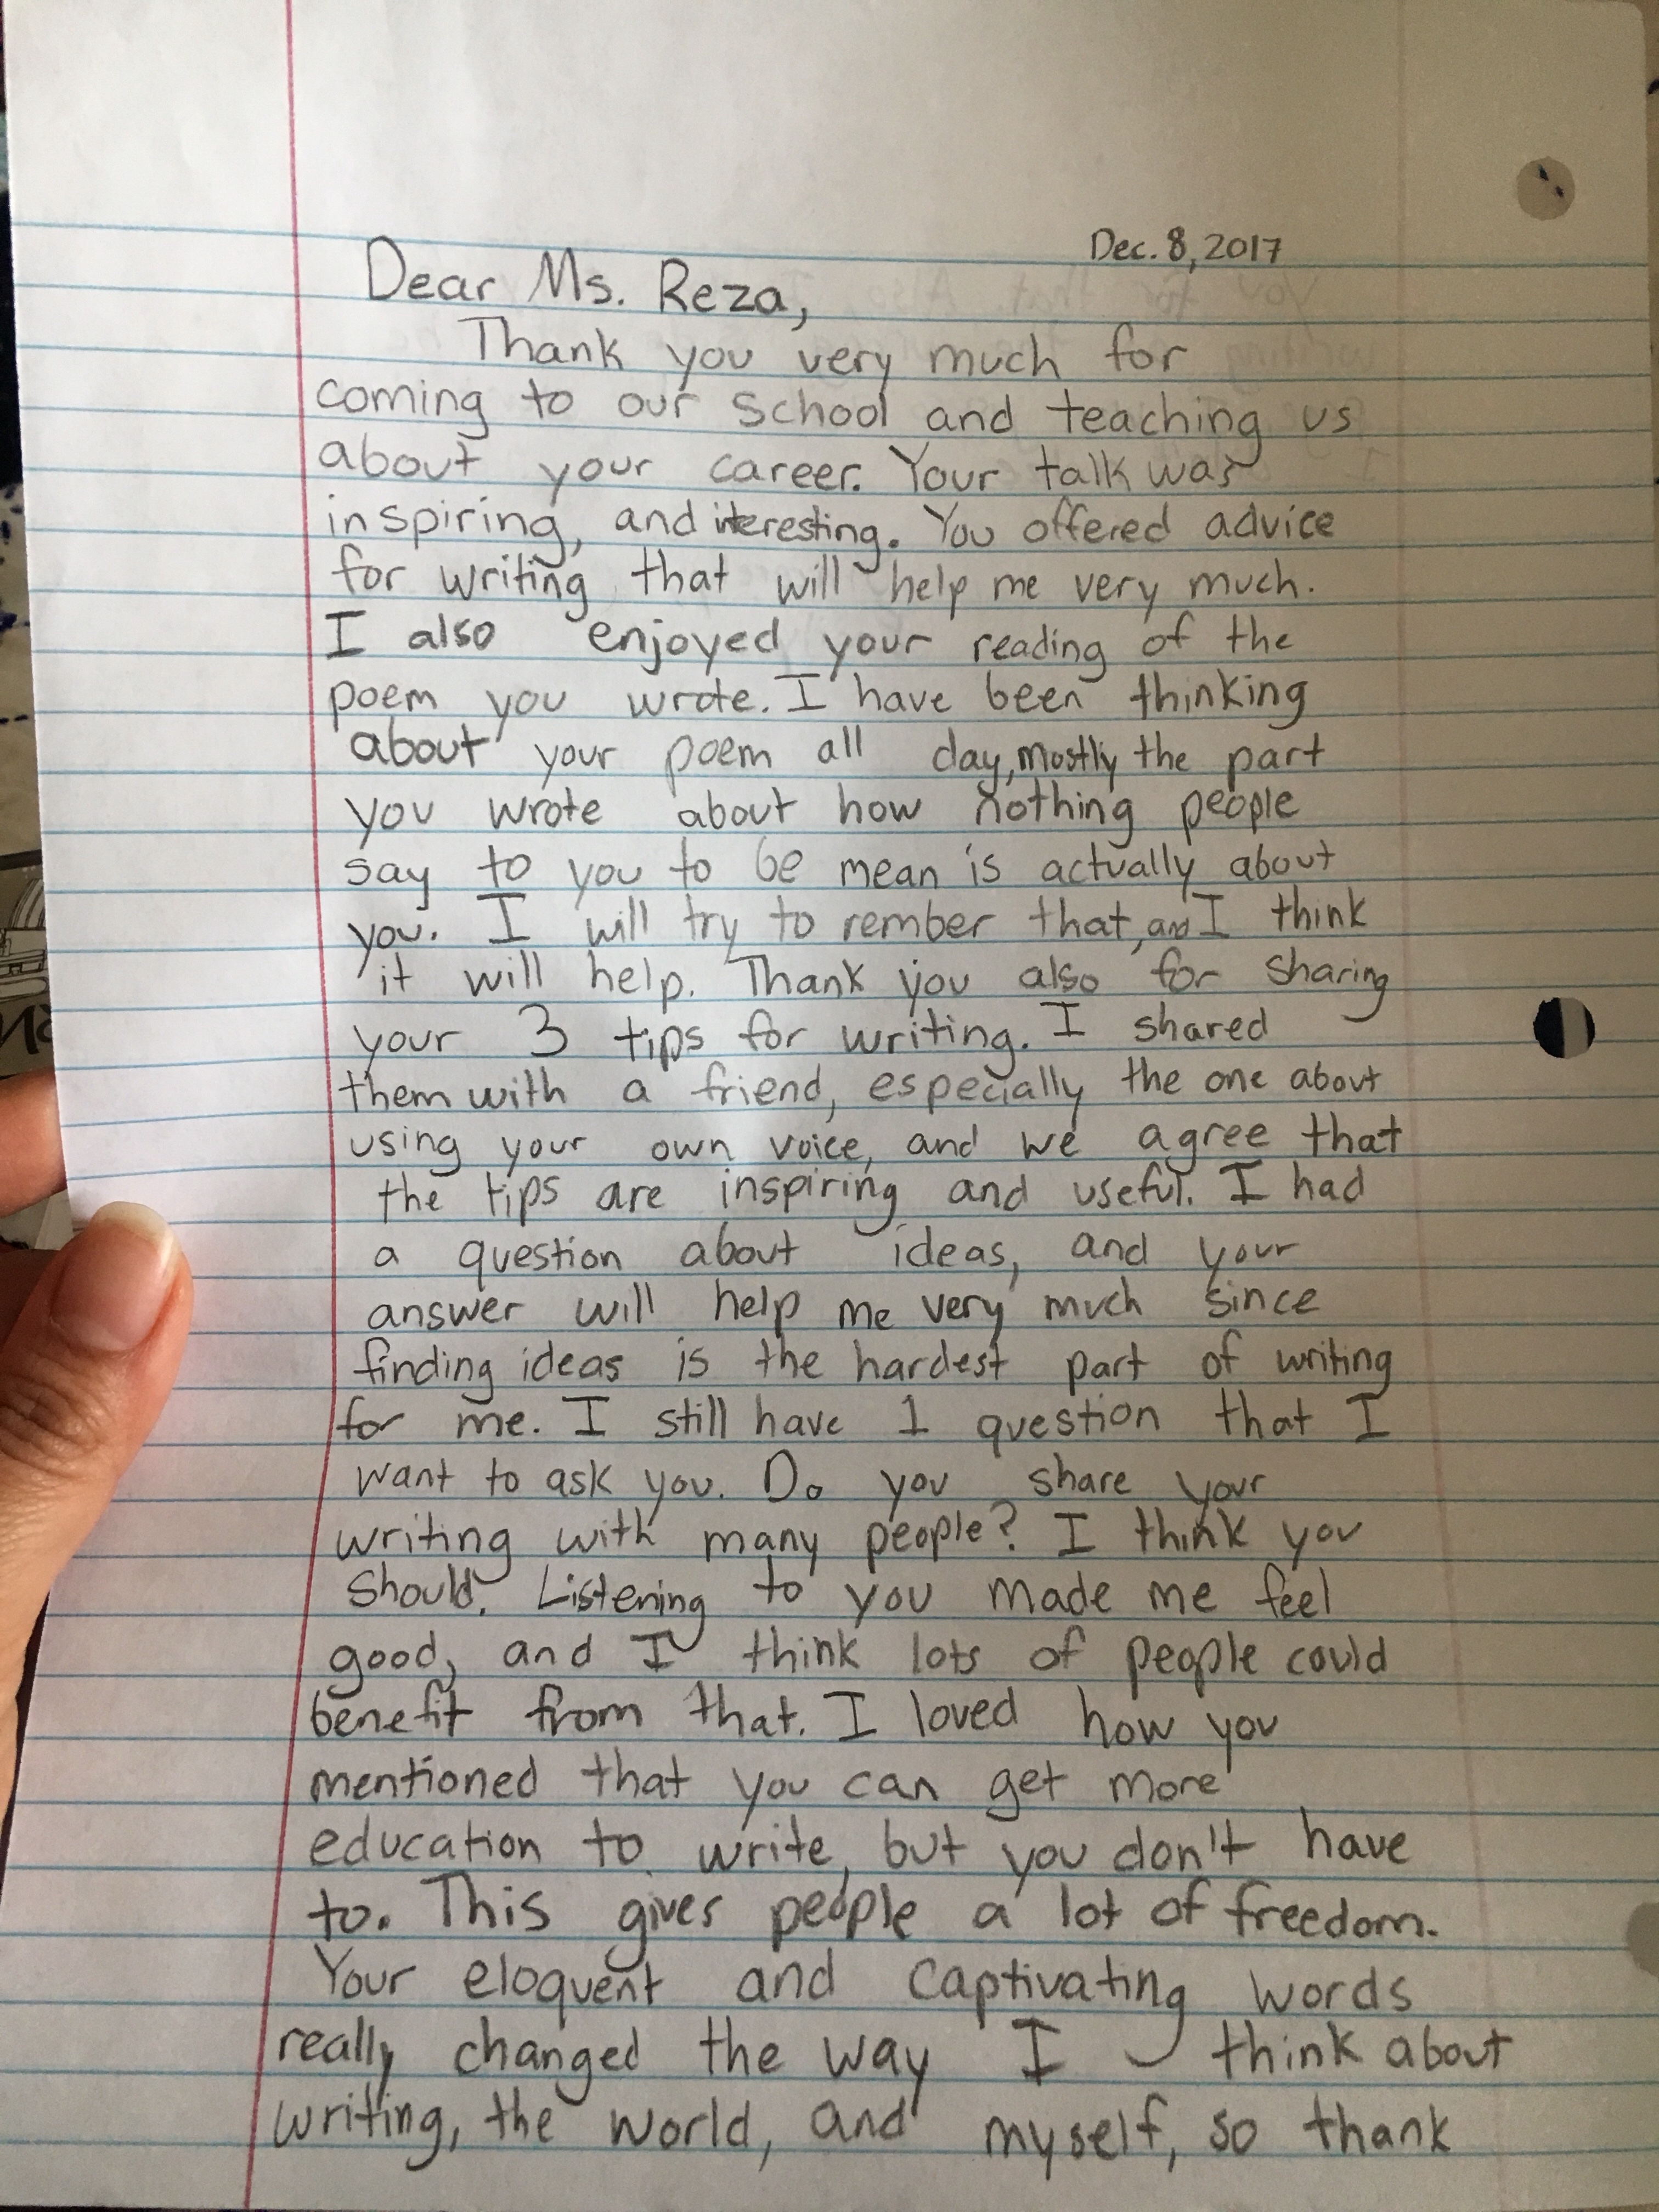 Dec. 8, 2017
Dear Ms. Reza,
Thank you very much for
coming to our school and teaching us
about your career. Your talk was
inspiring, and interesting. You offered advice
for writing that will help me very much.
I also enjoyed your reading of the
poem you wrote. I have been thinking
about your poem all day, mostly the part
you wrote about how nothing people
say to you to be mean is actually about
you. I will try to rember that, and I think
it will help. Thank you also for sharing
your 3 tips for writing. I shared
them with a friend, especially the one about
using your own voice, and we agree that
the tips are inspiring and useful. I had
a question about ideas, and your
answer will help me very much since
finding ideas is the hardest part of writing
for me. I still have 1 question that I
want to ask you. Do you share your
writing with many people? I think you
should. Listening to you made me feel
good, and I think lots of people could
benefit from that. I loved how you
mentioned that you can get more
education to write, but you don't have
to. This gives people a lot of freedom.
Your eloquent and captivating words
really changed the way I think about
writing, the world, and myself, so thank